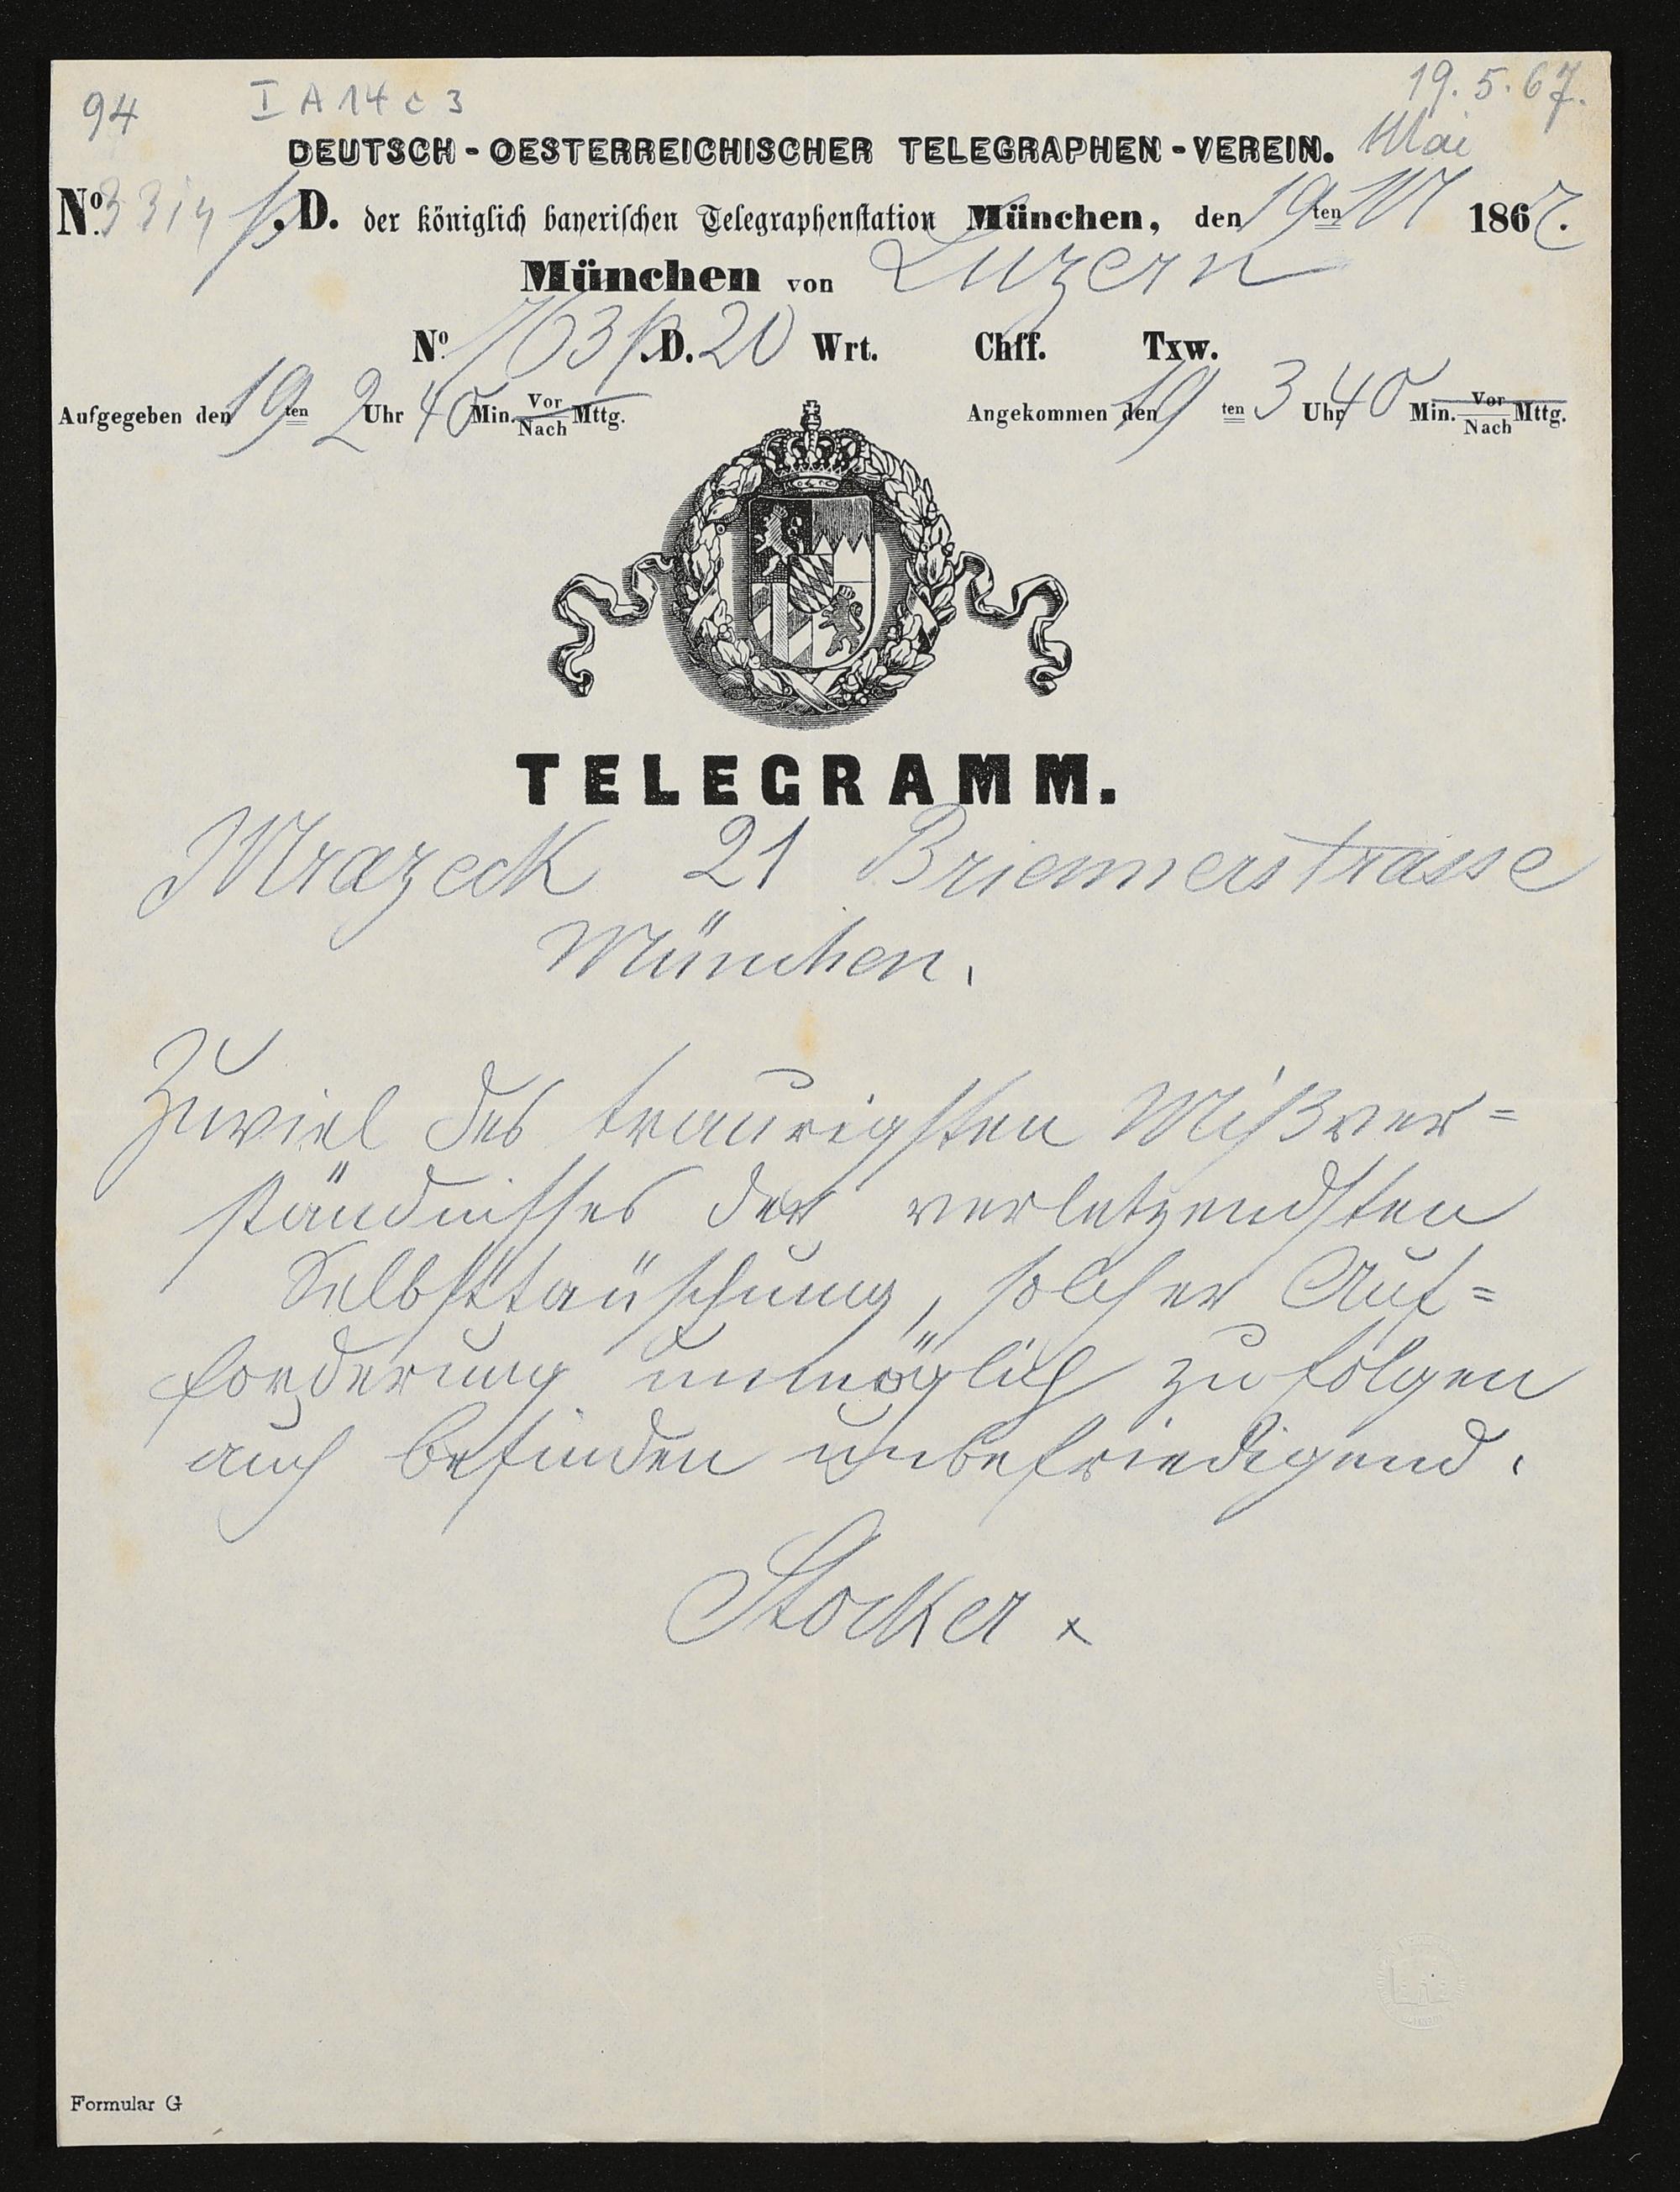 94 I A 14 c 3 19. 5. 67.
DEUTSCH-OESTERREICHISCHER TELEGRAPHEN-VEREIN. Mai
No. p. D. der königlich bayerischen Telegraphenstation München, den 19ten 1867.
München von Luzern
No. 763 p. D. 20 Wrt. Chff. Txw.
Aufgegeben den 19ten 2 Uhr 40 Min. Vor/Nach Mttg. Angekommen den 19ten 3 Uhr 40 Min. Vor/Nach Mttg.
TELEGRAMM.
Mrazeck 21 Briennerstrasse
München.
Zuviel des traurigsten Mißver=
ständnisses der verletzendsten
Selbsttäuschung, solcher Auf=
forderung unmöglich zu folgen
auch befinden unbefriedigend.
Stocker x
Formular G